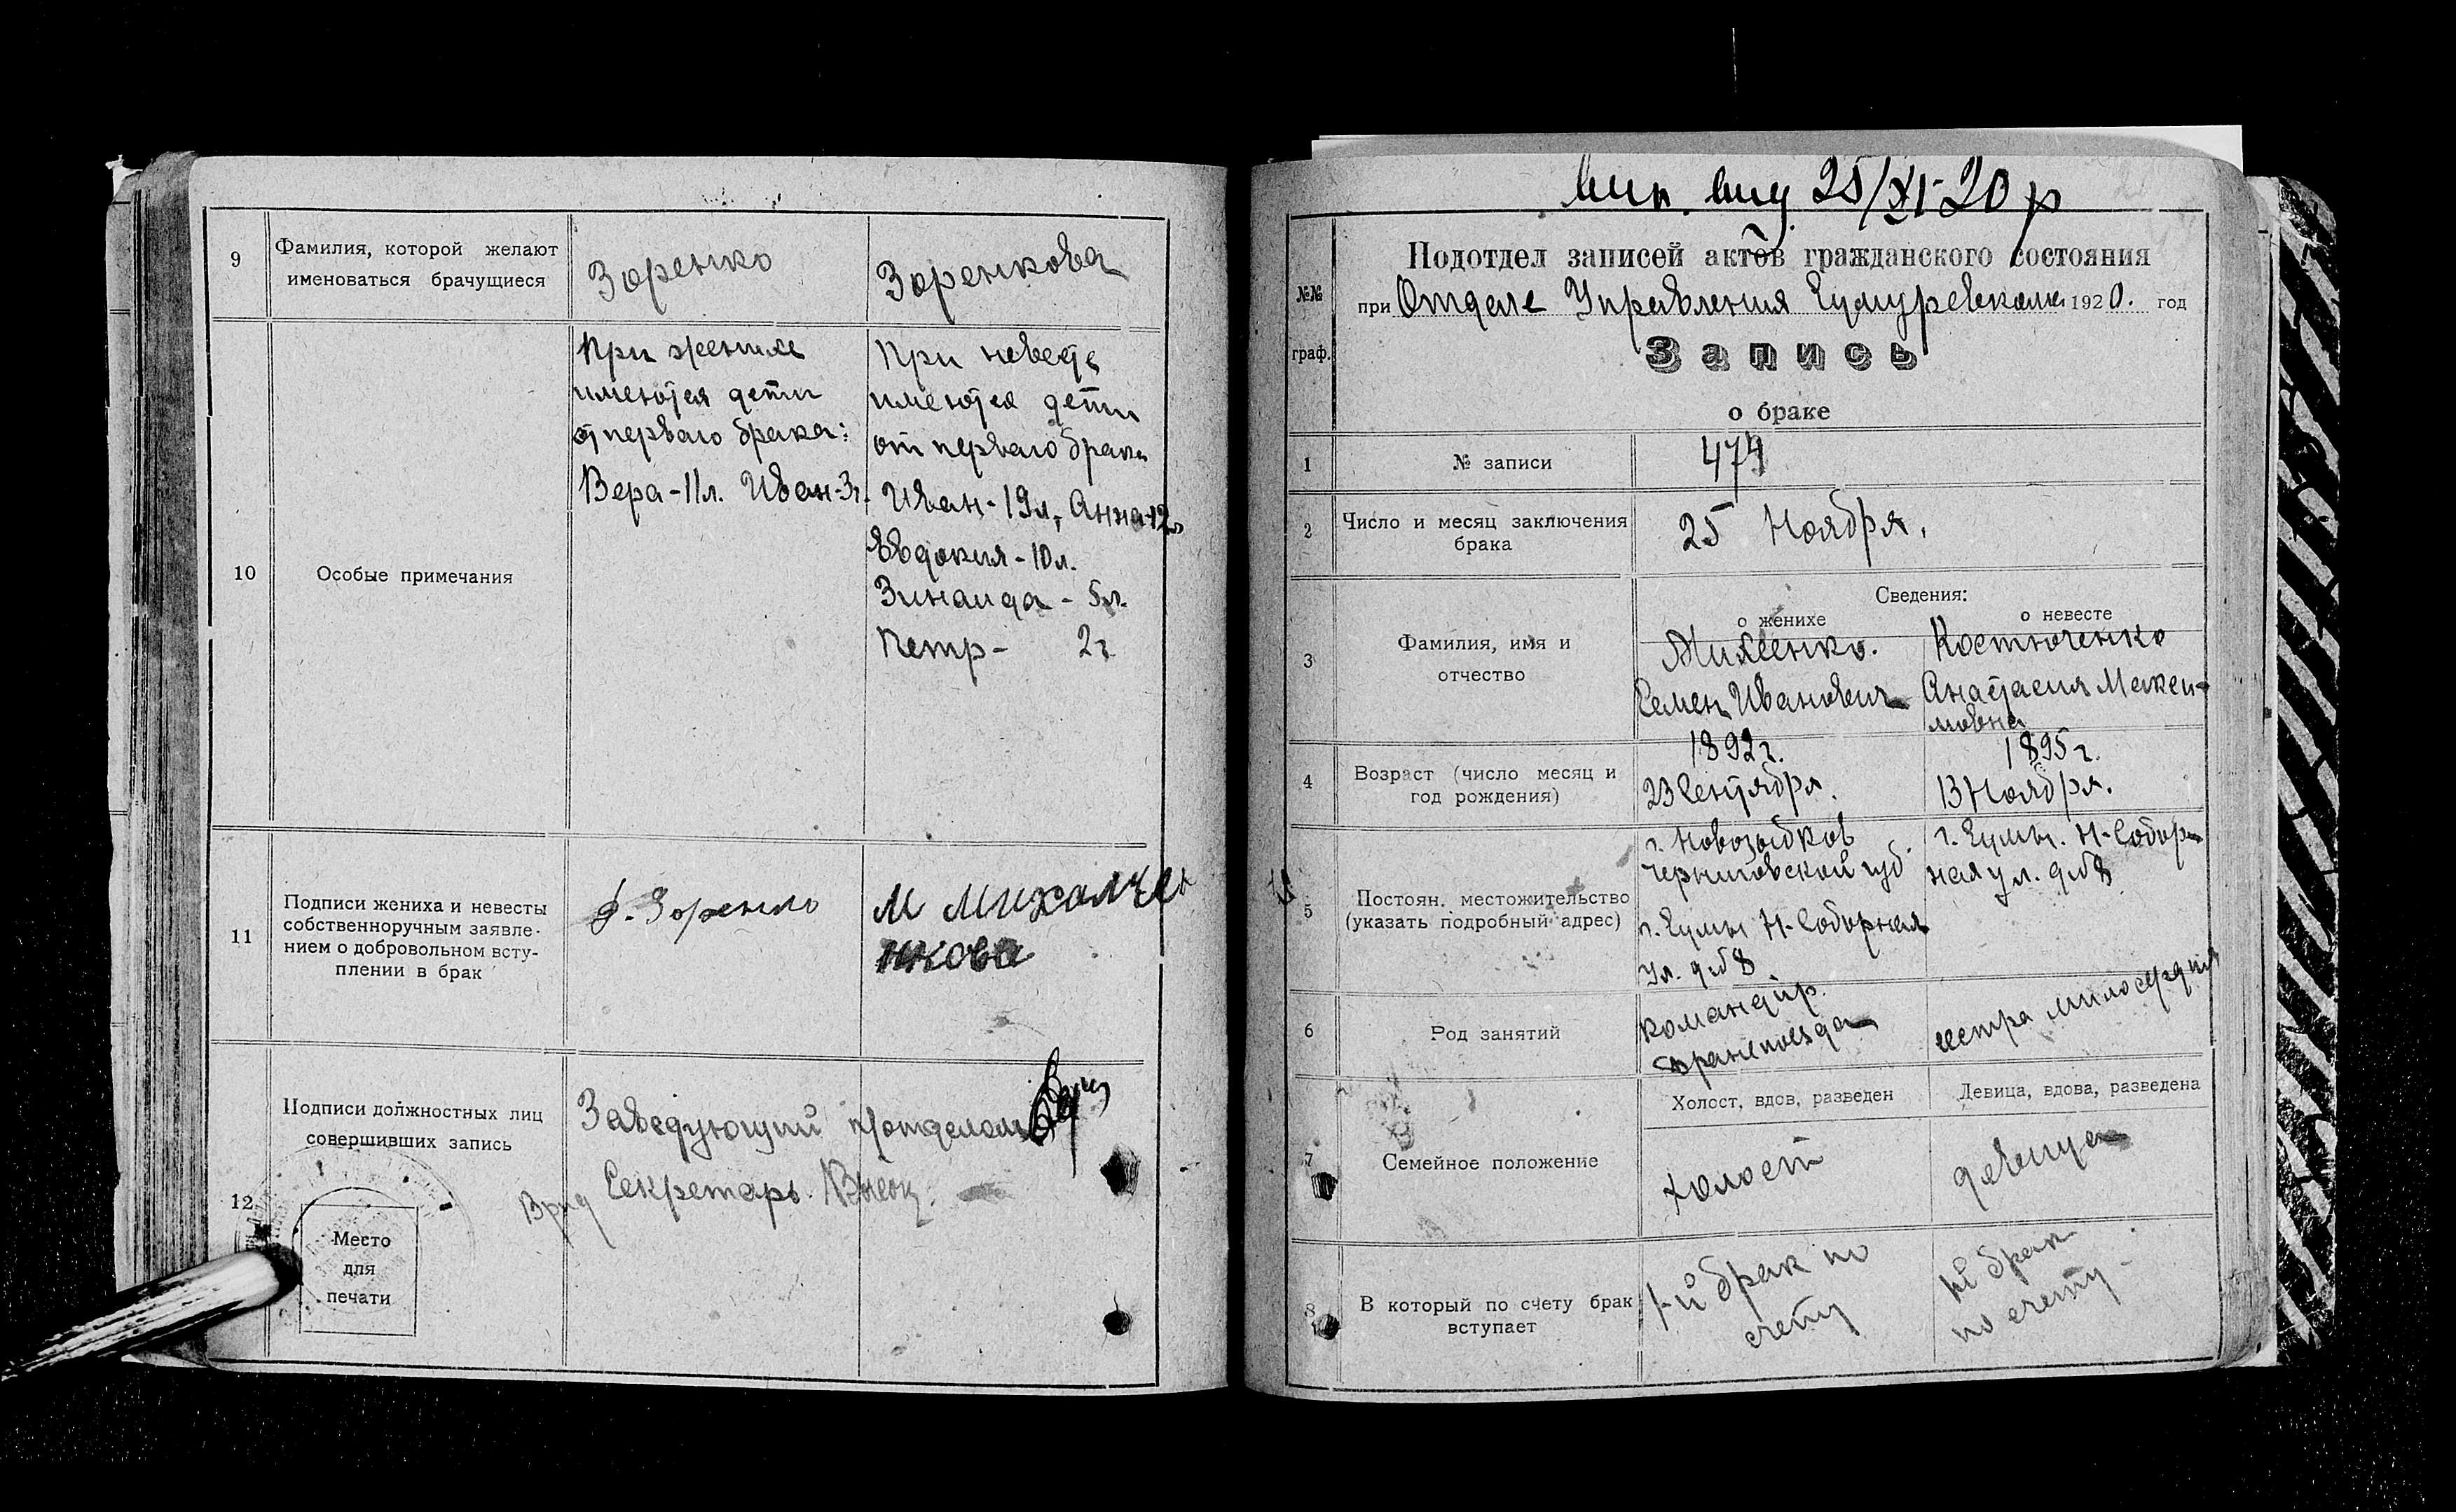 9
Фамилия, которой желают
именоваться брачущиеся
Зоренко
Зоренкова
10
Особые примечания
При женихе
имеются дети
от перваго брака:
Вера-11л. Иван-3г.
При невесте
имеются дети
от перваго брака
Иван-19л, Анна-12л
Евдокия-10л.
Зинаида - 5л.
Петр- 2г
11
Подписи жениха и невесты
собственноручным заявле-
нием о добровольном всту-
плении в брак
Зоренко
М Михалче
нкова
12
Подписи должностных лиц
совершивших запись
Заведующий п/отделом
Врид Секретарь
Место
для
печати
25/XI-20 р
№№
граф.
Подотдел записей актов гражданского состояния
при Отделе Управления Сумуревкома 1920. год
Запись
о браке
1
№ записи
474
2
Число и месяц заключения
брака
25 Ноября.
3
Фамилия, имя и
отчество
Сведения:
о женихе
о невесте
Семен Иванович
Костюченко
Анастасия Макси-
мовна
4
Возраст (число месяц и
год рождения)
1892г.
23 Сентября.
1895г.
13 Ноября.
5
Постоян. местожительство
(указать подробный адрес)
г. Новозыбков
Черниговской губ.
г. Сумы Н-Соборная
ул. д.№8
г. Сумы. Н-Собор-
ная ул. д.№8
6
Род занятий
командир
бронепоезда
сестра милосердия
7
Семейное положение
Холост, вдов, разведен
Девица, вдова, разведена
холост
девица
8
В который по счету брак
вступает
1-й брак по
счету
1й брак
по счету